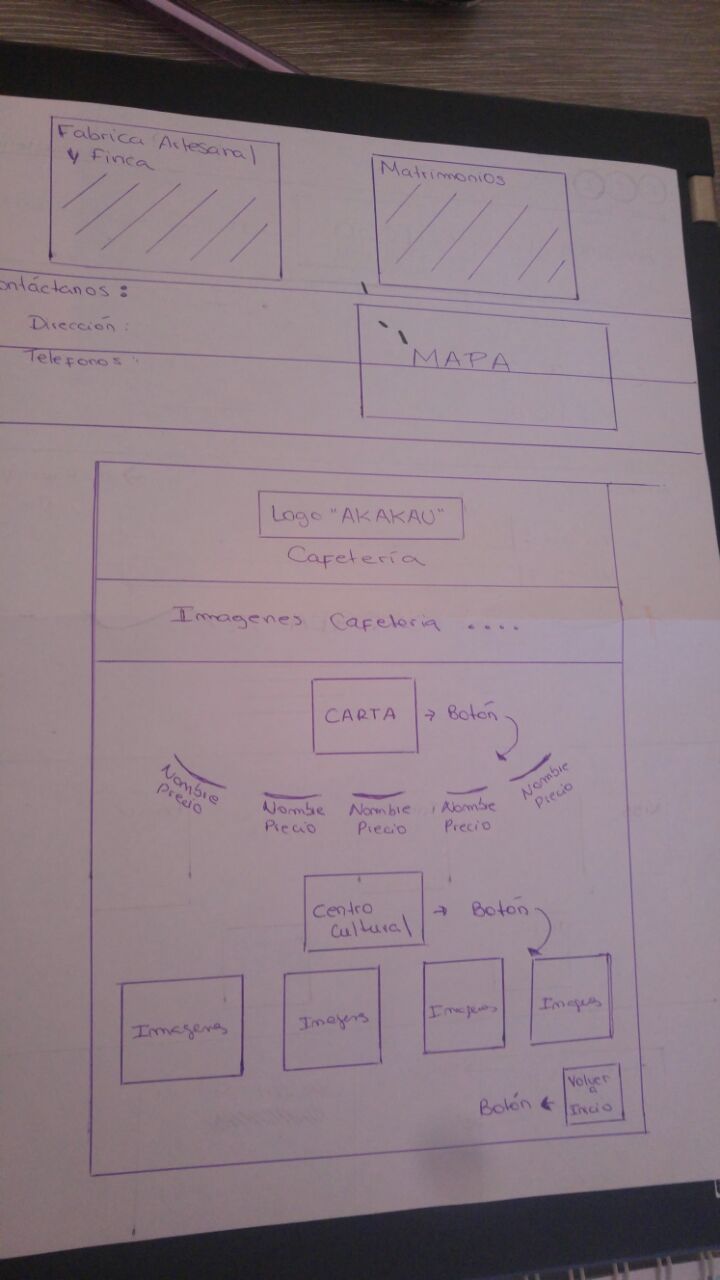 Fabrica Artesanal
y finca
Matrimonios
ontáctanos:
Dirección:
Telefonos:
MAPA
Logo "AKAKAU"
Cafetería
Imagenes Cafeteria ....
CARTA → Botón
Nombre
Precio
Nombre
Precio
Nombre
Precio
Nombre
Precio
Nombre
Precio
Centro
Cultural → Botón
Imagenes
Imagens
Imagenes
Imagenes
Botón ←
Volver
a
Inicio